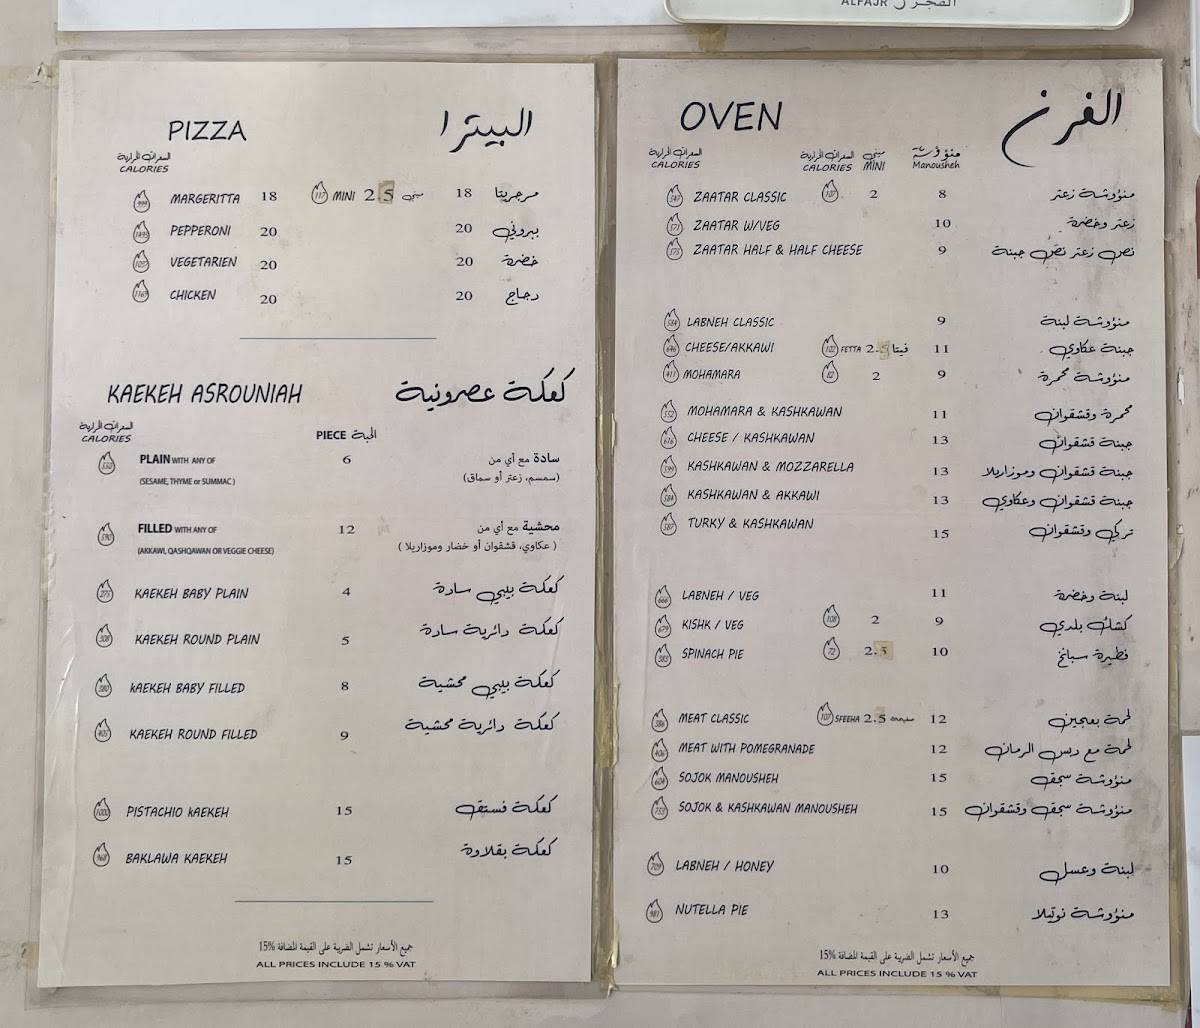 ALFAJR الفجر
PIZZA البيتزا
السعرات الحرارية
CALORIES
994 MARGERITTA 18 117 MINI 2.5 ميني 18 مرجريتا
PEPPERONI 20 20 ببروني
VEGETARIEN 20 20 خضرة
1169 CHICKEN 20 20 دجاج
KAEKEH ASROUNIAH كعكة عصرونية
السعرات الحرارية
CALORIES
PIECE الحبة
550 PLAIN WITH ANY OF 6 سادة مع أي من
(SESAME, THYME or SUMMAC) (سمسم، زعتر أو سماق)
590 FILLED WITH ANY OF 12 محشية مع أي من
(AKKAWI, QASHQAWAN OR VEGGIE CHEESE) (عكاوي، قشقوان أو خضار وموزاريلا)
275 KAEKEH BABY PLAIN 4 كعكة بيبي سادة
308 KAEKEH ROUND PLAIN 5 كعكة دائرية سادة
380 KAEKEH BABY FILLED 8 كعكة بيبي محشية
405 KAEKEH ROUND FILLED 9 كعكة دائرية محشية
1000 PISTACHIO KAEKEH 15 كعكة فستق
968 BAKLAWA KAEKEH 15 كعكة بقلاوة
جميع الأسعار تشمل الضريبة على القيمة المضافة 15%
ALL PRICES INCLUDE 15 % VAT
OVEN الفرن
السعرات الحرارية
CALORIES
السعرات الحرارية ميني منؤوشة
CALORIES MINI Manousheh
547 ZAATAR CLASSIC 107 2 8 منؤوشة زعتر
571 ZAATAR W/VEG 10 زعتر وخضرة
575 ZAATAR HALF & HALF CHEESE 9 نص زعتر نص جبنة
584 LABNEH CLASSIC 9 منؤوشة لبنة
646 CHEESE/AKKAWI 102 FETTA 2.5 فيتا 11 جبنة عكاوي
411 MOHAMARA 82 2 9 منؤوشة محمرة
552 MOHAMARA & KASHKAWAN 11 محمرة وقشقوان
616 CHEESE / KASHKAWAN 13 جبنة قشقوان
599 KASHKAWAN & MOZZARELLA 13 جبنة قشقوان وموزاريلا
584 KASHKAWAN & AKKAWI 13 جبنة قشقوان وعكاوي
587 TURKY & KASHKAWAN 15 تركي وقشقوان
666 LABNEH / VEG 11 لبنة وخضرة
679 KISHK / VEG 108 2 9 كشك بلدي
383 SPINACH PIE 72 2.5 10 فطيرة سبانخ
386 MEAT CLASSIC 107 SFEEHA 2.5 صفيحة 12 لحمة بعجين
406 MEAT WITH POMEGRANADE 12 لحمة مع دبس الرمان
604 SOJOK MANOUSHEH 15 منؤوشة سجق
753 SOJOK & KASHKAWAN MANOUSHEH 15 منؤوشة سجق وقشقوان
709 LABNEH / HONEY 10 لبنة وعسل
981 NUTELLA PIE 13 منؤوشة نوتيلا
جميع الأسعار تشمل الضريبة على القيمة المضافة 15%
ALL PRICES INCLUDE 15 % VAT